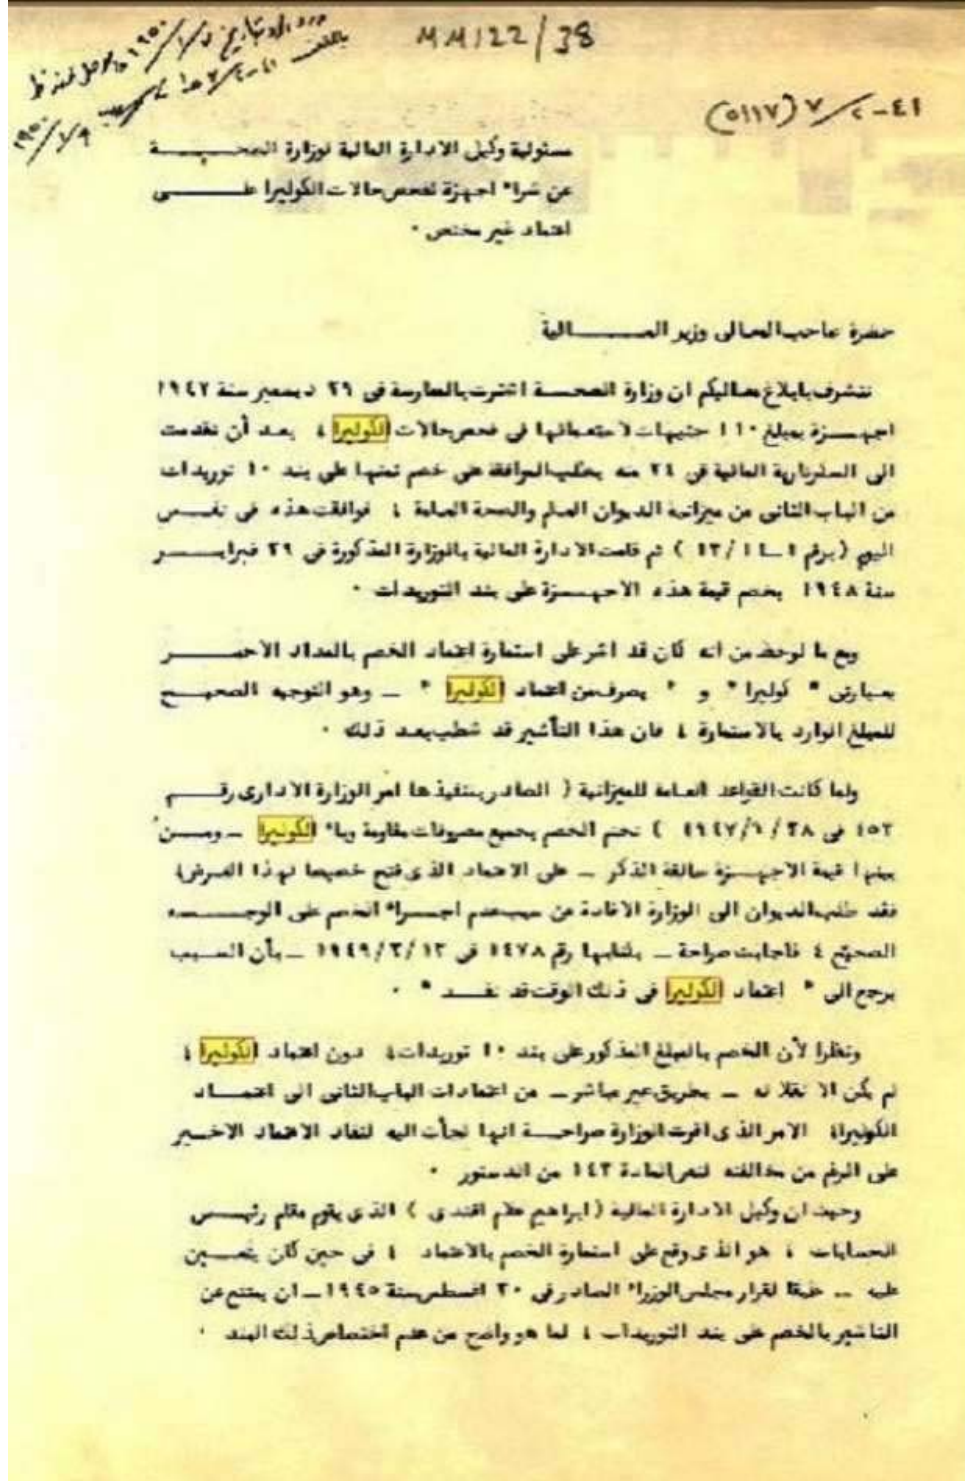 MM122/38
٤١-٢/٧ (٥١١٧)
مسئولية وكيل الادارة المالية لوزارة الصحية
عن شراء اجهزة لفحص حالات الكوليرا على
اعتماد غير مختص ٠
حضرة صاحب المعالى وزير المالية
نتشرف بابلاغ معاليكم ان وزارة الصحة اشترت بالممارسة فى ٢٩ ديسمبر سنة ١٩٤٧
اجهزة بمبلغ ١١٠ جنيهات لاستعمالها فى فحص حالات الكوليرا ؛ بعد أن تقدمت
الى السكرتارية المالية فى ٢٤ منه بطلب الموافقة على خصم ثمنها على بند ١٠ توريدات
من الباب الثانى من ميزانية الديوان العام والصحة العامة ؛ فوافقت هذه فى نفس
اليوم (برقم ١٣/١) ثم قامت الادارة المالية بالوزارة المذكورة فى ٢٩ فبراير
سنة ١٩٤٨ بخصم قيمة هذه الاجهزة على بند التوريدات ٠
ومع ما لوحظ من انه كان قد اشر على استمارة اعتماد الخصم بالمداد الاحمر
بعبارتى " كوليرا " و " يصرف من اعتماد الكوليرا " ــ وهو التوجيه الصحيح
للمبلغ الوارد بالاستمارة ؛ فان هذا التأشير قد شطب بعد ذلك ٠
ولما كانت القواعد العامة للميزانية ( الصادر بتنفيذها امر الوزارة الادارى رقم
١٥٢ فى ١٩٤٧/٦/٢٨ ) تحتم الخصم بجميع مصروفات مقاومة وباء الكوليرا ــ ومن
بينها قيمة الاجهزة سالفة الذكر ــ على الاعتماد الذى فتح خصيصا لهذا الغرض؛
فقد طلب الديوان الى الوزارة الافادة عن سبب عدم اجراء الخصم على الوجه
الصحيح ؛ فاجابت صراحة ــ بكتابها رقم ١٤٧٨ فى ١٩٤٩/٣/١٣ ــ بأن السبب
يرجع الى " اعتماد الكوليرا فى ذلك الوقت قد نفد " ٠
ونظرا لأن الخصم بالمبلغ المذكور على بند ١٠ توريدات؛ دون اعتماد الكوليرا ؛
لم يكن الا نقلا له ــ بطريق غير مباشر ــ من اعتمادات الباب الثانى الى اعتماد
الكوليرا؛ الامر الذى اقرت الوزارة صراحة انها لجأت اليه لنفاد الاعتماد الاخير
على الرغم من مخالفته لنص المادة ١٤٣ من الدستور ٠
وحيث ان وكيل الادارة المالية (ابراهيم علام افندى ) الذى يقوم مقام رئيس
الحسابات ؛ هو الذى وقع على استمارة الخصم بالاعتماد ؛ فى حين كان يتعين
عليه ــ طبقا لقرار مجلس الوزراء الصادر فى ٢٠ اغسطس سنة ١٩٤٥ ــ ان يمتنع عن
التاشير بالخصم على بند التوريدات ؛ لما هو واضح من عدم اختصاص ذلك البند ٠